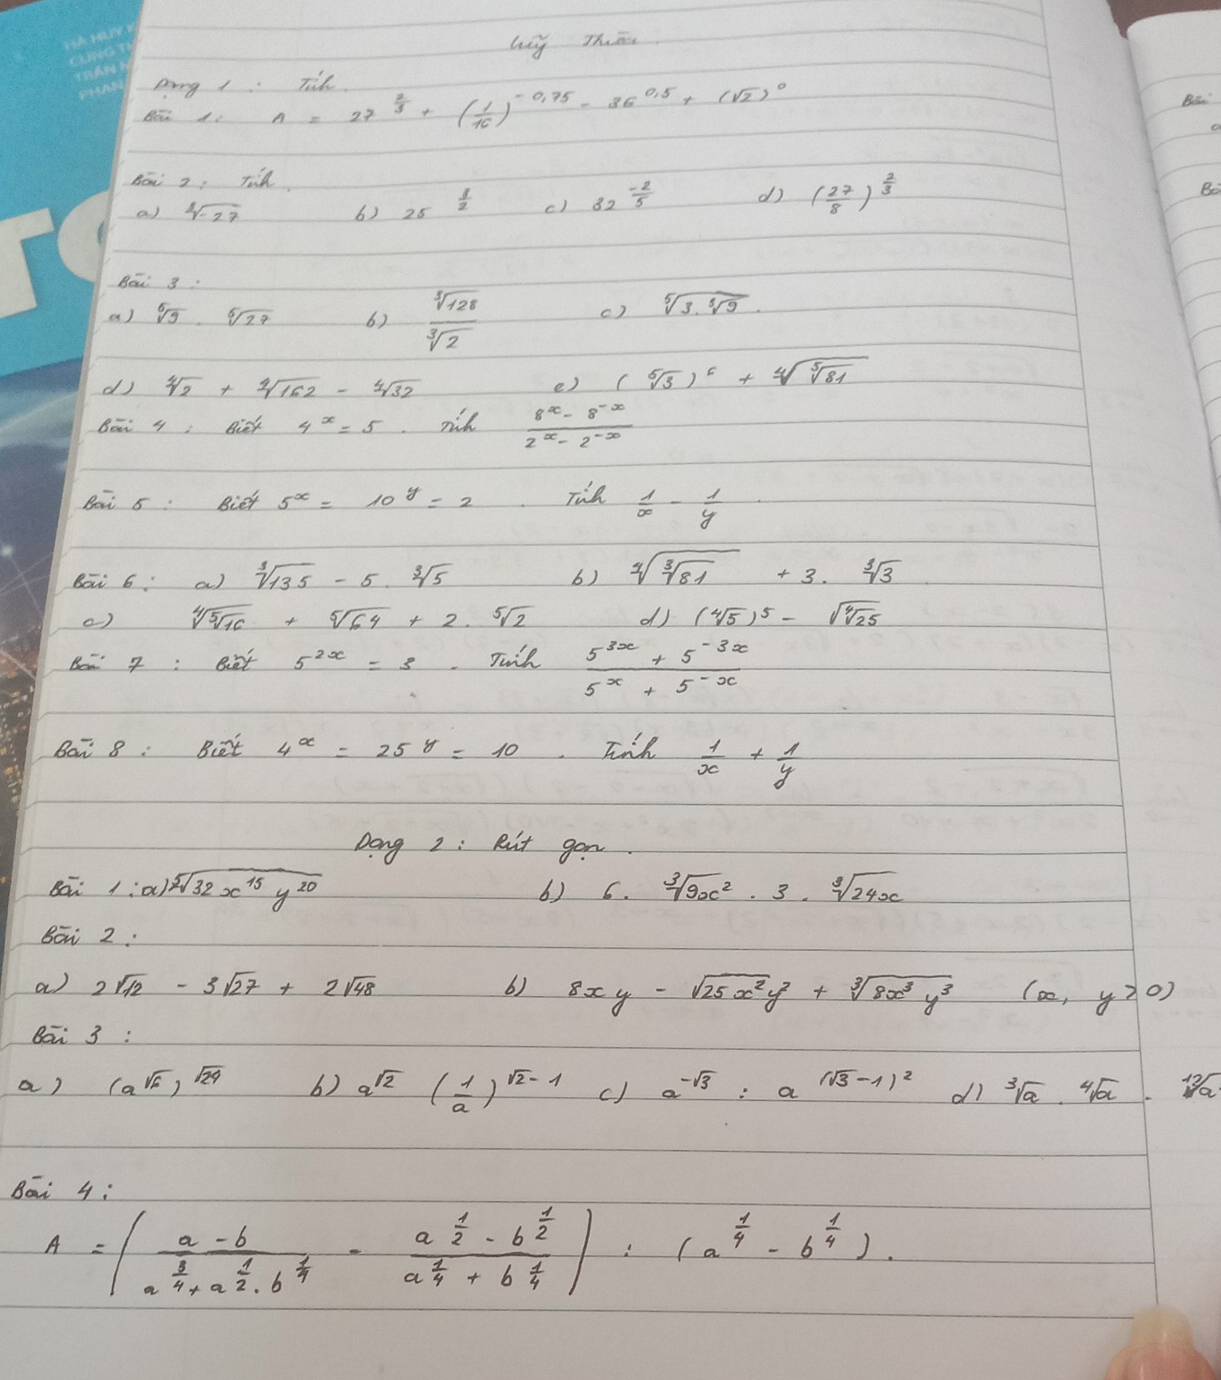 Luỹ Thừa.
Dạng 1 : Tính.
Bài 1: A = 27^(2/3) + (1/16)^(-0,75) - 36^(0,5) + (√2)^0
Bài 2 : Tính.
a) ∛-27 b) 25^(3/2) c) 32^(-2/5) d) (27/8)^(2/3)
Bài 3 :
a) ⁵√9 . ⁵√27 b) ∛128 / ∛2 c) ⁵√(3.∛9) .
d) ⁴√2 + ⁴√162 - ⁴√32 e) (⁵√3)^6 + ⁴√(⁵√81)
Bài 4 : Biết 4^x = 5 . Tính (8^x - 8^(-x)) / (2^x - 2^(-x))
Bài 5 : Biết 5^x = 10^y = 2 . Tính 1/x - 1/y .
Bài 6 : a) ∛135 - 5 . ∛5 b) ⁴√(∛81) + 3 . ∛3
c) ⁴√(⁵√16) + ⁵√64 + 2 . ⁵√2 d) (⁴√5)^5 - √(⁴√25)
Bài 7 : Biết 5^(2x) = 3 . Tính (5^(3x) + 5^(-3x)) / (5^x + 5^(-x))
Bài 8 : Biết 4^x = 25^y = 10 . Tính 1/x + 1/y
Dạng 2 : Rút gọn .
Bài 1 : a) ⁵√(32x^15 y^20) b) 6 . ∛(9x²) . 3 . ∛(24x)
Bài 2 :
a) 2√12 - 3√27 + 2√48 b) 8xy - √(25x²y²) + ∛(8x³y³) (x, y > 0)
Bài 3 :
a) (a^√6)^√24 b) a^√2 (1/a)^(√2-1) c) a^(-√3) : a^((√3-1)²) d) ∛a . ⁴√a . ¹²√a
Bài 4 :
A = ( (a - b) / (a^(3/4) + a^(1/2) . b^(1/4)) - (a^(1/2) - b^(1/2)) / (a^(1/4) + b^(1/4)) ) : (a^(1/4) - b^(1/4)) .